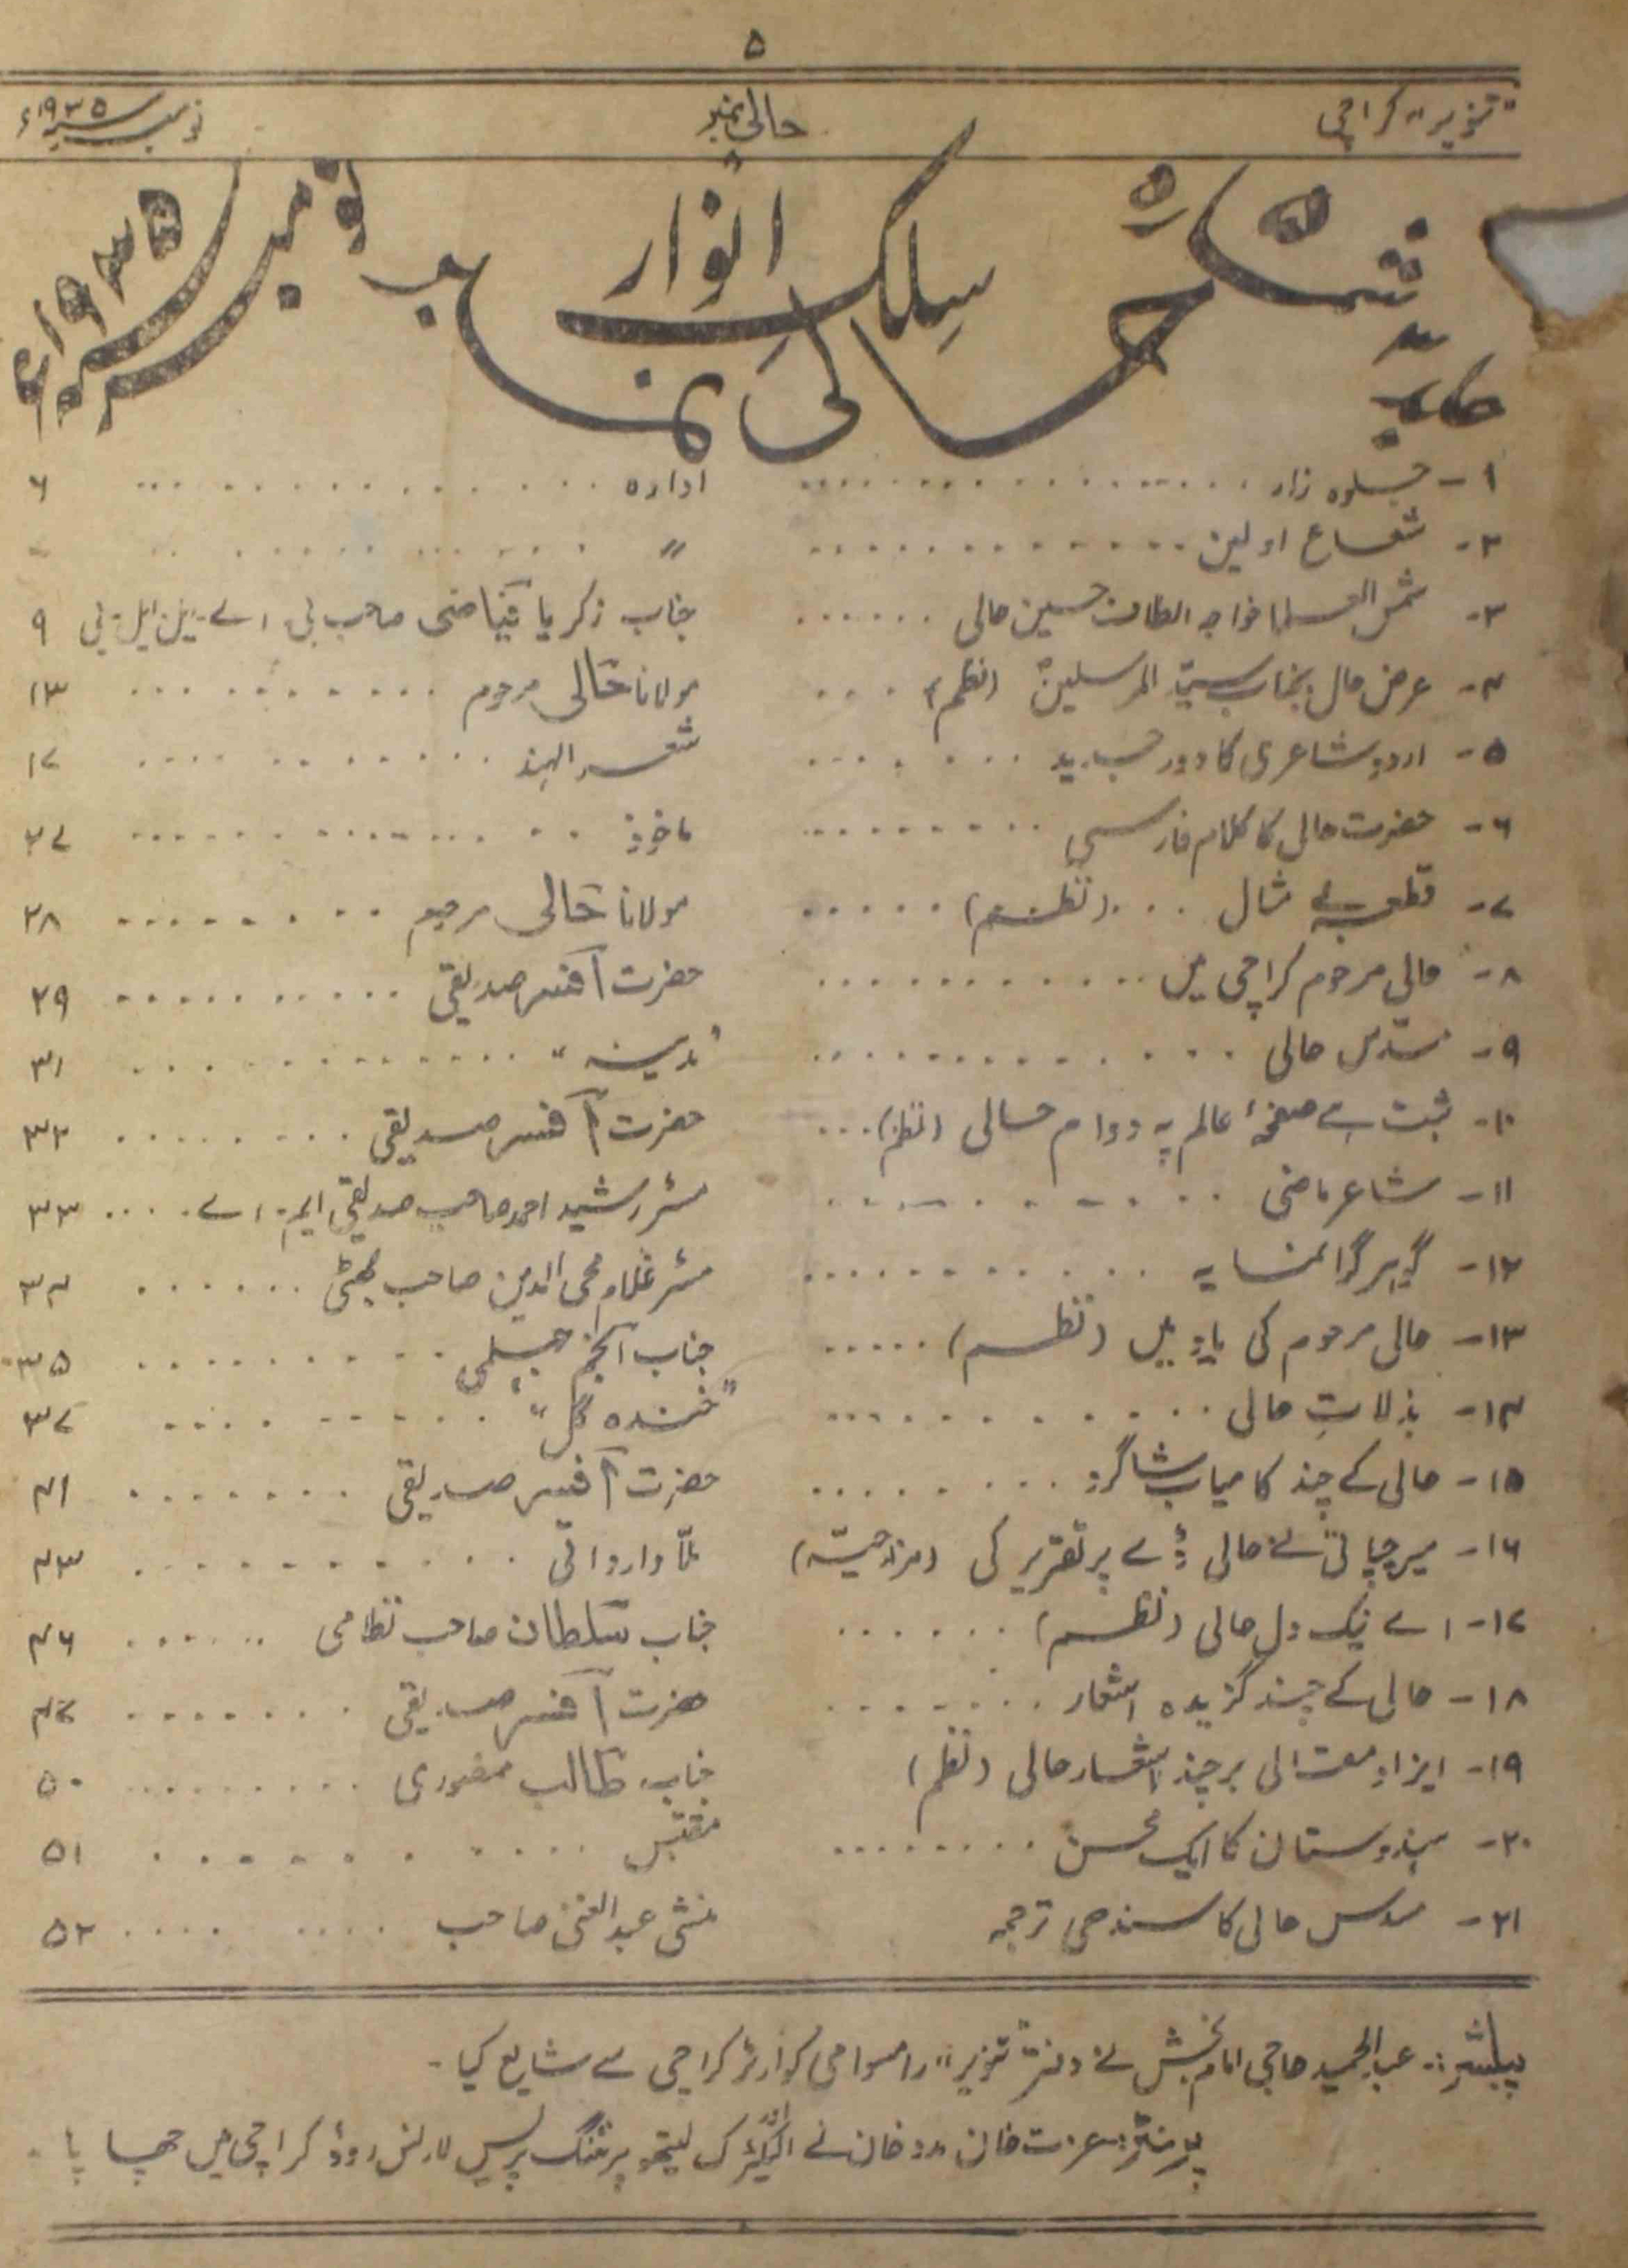 ۵
"تنویر" کراچی
حالی نمبر
نومبر ۱۹۳۵ء
سلک انوار
جلد
شمارہ ۵
حالی نمبر بابت نومبر ۱۹۳۵ء
۱- جلوہ زار ........ ادارہ ........ ۶
۲- شعاع اولین ........ 〃 ........
۳- شمس العلما خواجہ الطاف حسین حالی ...... جناب زکریا صاحب بی. اے. ایل ایل. بی ۹
۴- عرض حال بجناب سید المرسلینؐ (نظم) .... مولانا حالی مرحوم ........ ۱۳
۵- اردو شاعری کا دور جدید ........ شعر الہند ........ ۱۷
۶- حضرت حالی کا کلام فارسی ........ ماخوذ ........ ۲۷
۷- قطعہ بے مثال ... (نظم) ..... مولانا حالی مرحوم ........ ۲۸
۸- حالی مرحوم کراچی میں ........ حضرت آفسر صدیقی ........ ۲۹
۹- مسدس حالی ........ "مدینہ" ........ ۳۱
۱۰- ثبت ہے صفحۂ عالم پہ دوام حالی (نظم) ... حضرت آفسر صدیقی ........ ۳۲
۱۱- شاعر ماضی ........ مسٹر رشید احمد صاحب صدیقی ایم. اے. .... ۳۳
۱۲- گوہر گرانمایہ ........ مسٹر غلام محی الدین صاحب بھٹی ...... ۳۴
۱۳- حالی مرحوم کی یاد میں (نظم) ..... جناب انجم جبلی ........ ۳۵
۱۴- بذلات حالی ........ "خندہ گل" ........ ۳۷
۱۵- حالی کے چند کامیاب شاگرد ........ حضرت آفسر صدیقی ....... ۴۱
۱۶- میر چپاتی نے حالی ڈے پر تقریر کی (مزاحیہ) ملا وارواتی ........ ۴۳
۱۷- اے نیک دل حالی (نظم) ...... جناب سلطان صاحب نظامی ...... ۴۶
۱۸- حالی کے چند گزیدہ اشعار ....... حضرت آفسر صدیقی ....... ۴۷
۱۹- ایزاد معتالی بر چند اشعار حالی (نظم) جناب طالب منصوری ........ ۵۰
۲۰- ہندوستان کا ایک محسن ........ مقتبس ........ ۵۱
۲۱- مسدس حالی کا سندھی ترجمہ منشی عبدالغنی صاحب ........ ۵۲
پبلشر:- عبدالحمید حاجی امام بخش نے دفتر "تنویر" رامسوامی کوارٹر کراچی سے شایع کیا -
پرنٹر: عزت خان مدد خان نے الیکٹرک لیتھو پرنٹنگ پریس لارنس روڈ کراچی میں چھاپا -